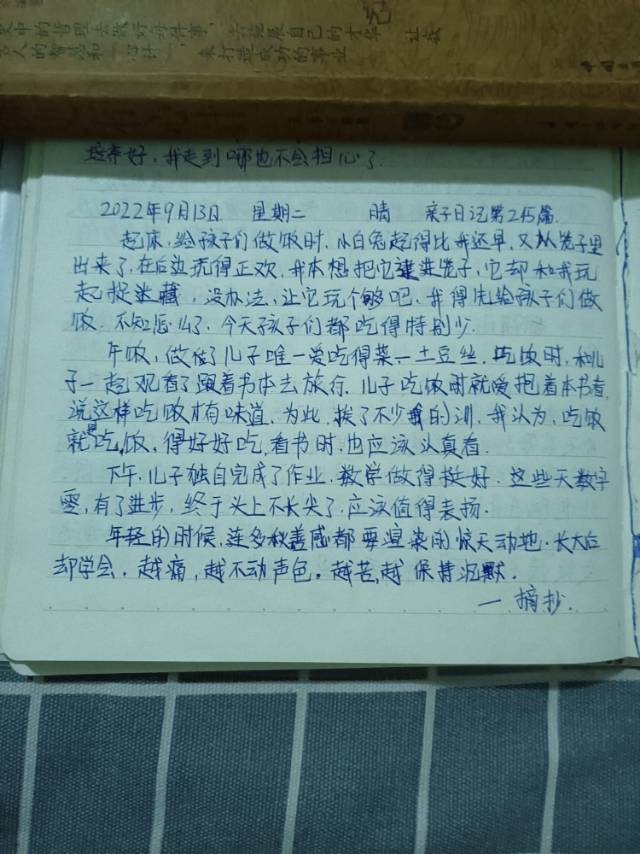 史中的哲理去做好每件事，去施展自己的才华 让我
古人的智慧和"心计"，来打造成功的事业
这来好，我走到哪也不会担心了
2022年9月13日 星期二 晴 亲子日记第245篇.
起床，给孩子们做饭时，小白兔起得比我还早，又从笼子里
出来了，在后边玩得正欢，我本想把它逮进笼子，它却和我玩
起捉迷藏，没办法，让它玩个够吧，我得先给孩子们做
饭. 不知怎么了，今天孩子们都吃得特别少.
午饭，做好了儿子唯一爱吃得菜一土豆丝. 吃饭时，和儿
子一起观看了跟着书本去旅行. 儿子吃饭时就爱抱着本书看，
说这样吃饭才有味道，为此，挨了不少我的训，我认为，吃饭
就是吃饭，得好好吃，看书时，也应该认真看.
下午，儿子独自完成了作业，数学做得挺好. 这些天数字
零，有了进步，终于头上不长尖了，应该值得表扬.
年轻的时候，连多愁善感都要渲染的惊天动地. 长大后
却学会. 越痛，越不动声色. 越苦，越保持沉默.
一摘抄.